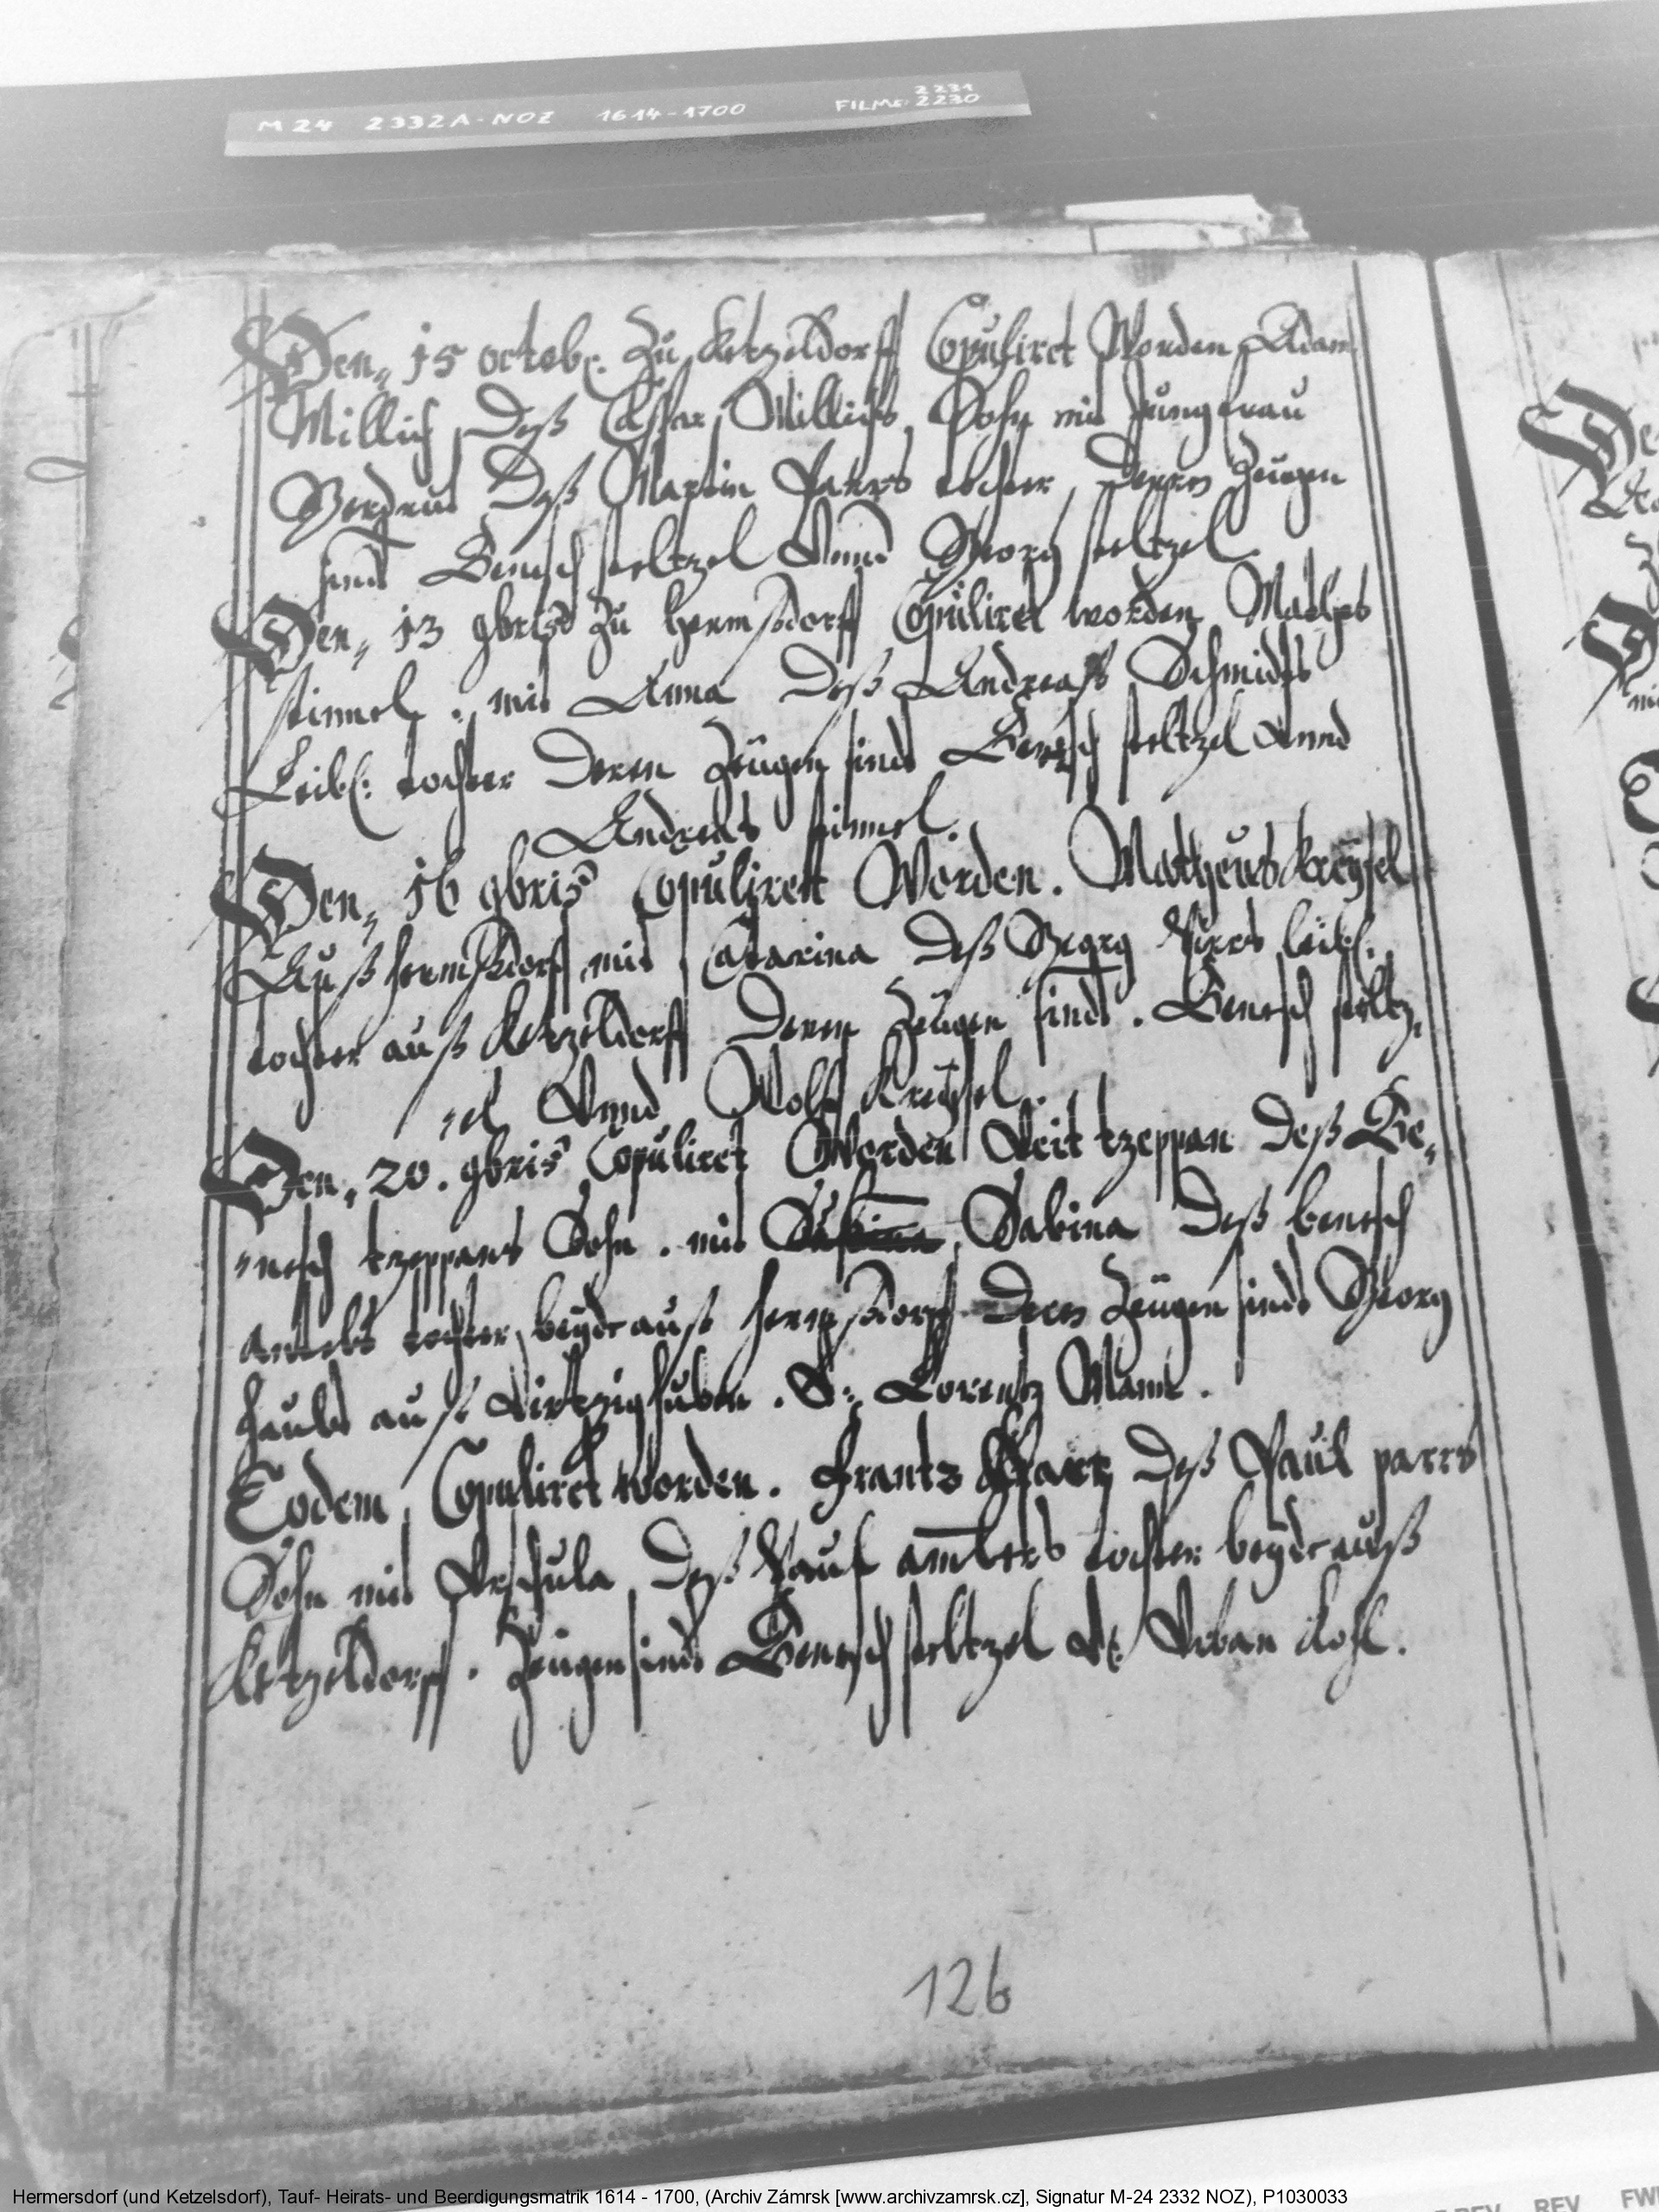 M 24 2332A-NOZ 1614-1700 FILM: 2231 2230
Den 15 octob: Zu Ketzeldorff Copuliret Worden Adam
Millich, Deß Casper Millichs Sohn mit Jungfrau
Gerdrut Deß Martin tochter, Deren Zeugen
sind Bensch steltzel Vnnd Georg steltzel
Den 13 9bris Zu hermßdorff Copuliret worden Mathes
stimmel. mit Anna Deß Andreaß Schmidts
Leibl: tochter Deren Zeugen sind Bensch steltzel Vnnd
Andreas stimmel.
Den 16 9bris Copulirett Worden. Matheus Kreysel
Auß hermßdorff mit Catarina Deß Georg leibl.
tochter auß Ketzeldorff Deren Zeugen sind. Bensch steltz,
,el Vnnd Wolff Kreysel.
Den 20. 9bris Copuliret Worden Veit tzeppan Deß Be,
,nesch tzeppans Sohn. mit Sabina Deß benesch
tochter, beyde auß hermßdorff Deren Zeugen sind Georg
auß Virtzighuben. V: Lorentz Mann.
Eodem Copuliret worden. Frantz Deß Paul parrs
Sohn mit Vrschula Deß Paul tochter beyde auß
Ketzeldorff. Zeugen sind Bensch steltzel V: Urban Kohl.
126
Hermersdorf (und Ketzelsdorf), Tauf- Heirats- und Beerdigungsmatrik 1614 - 1700, (Archiv Zámrsk [www.archivzamrsk.cz], Signatur M-24 2332 NOZ), P1030033